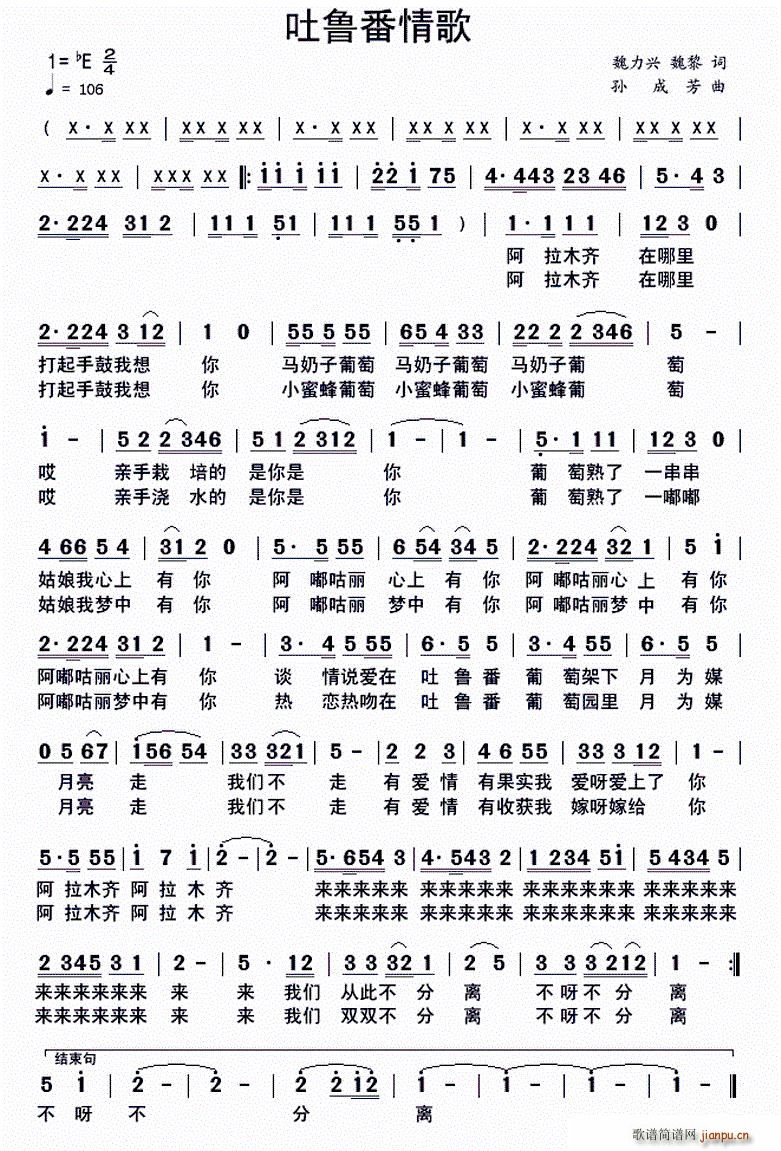 吐鲁番情歌
1= ♭E 2/4
魏力兴 魏黎 词
♩ = 106
孙 成 芳 曲
( X· X XX | XXX XX | X· X XX | XXX XX | X· X XX | XXX XX |
X· X XX | XXX XX ‖: i i i i i | 2 2 i 75 | 4·443 23 46 | 5· 4 3 |
2·224 31 2 | 11 1 51 | 11 1 55 1 ) | 1· 1 1 1 | 12 3 0 |
阿 拉木齐 在哪里
阿 拉木齐 在哪里
2·224 3 12 | 1 0 | 55 5 55 | 65 4 33 | 22 2 2 346 | 5 - |
打起手鼓我想 你 马奶子葡萄 马奶子葡萄 马奶子葡 萄
打起手鼓我想 你 小蜜蜂葡萄 小蜜蜂葡萄 小蜜蜂葡 萄
i - | 5 2 2 346 | 5 1 2 312 | 1 - | 1 - | 5· 1 11 | 12 3 0 |
哎 亲手栽 培的 是你是 你 葡 萄熟了 一串串
哎 亲手浇 水的 是你是 你 葡 萄熟了 一嘟嘟
4 66 5 4 | 31 2 0 | 5· 5 55 | 6 54 34 5 | 2·224 32 1 | 5 i |
姑娘我心上 有 你 阿 嘟咕丽 心上 有 你 阿 嘟咕丽心 上 有 你
姑娘我梦中 有 你 阿 嘟咕丽 梦中 有 你 阿 嘟咕丽梦 中 有 你
2·224 31 2 | 1 - | 3· 4 55 | 6· 5 5 | 3· 4 55 | 6· 5 5 |
阿嘟咕丽心上有 你 谈 情说爱在 吐 鲁 番 葡 萄架下 月 为 媒
阿嘟咕丽梦中有 你 热 恋热吻在 吐 鲁 番 葡 萄园里 月 为 媒
0 5 67 | i56 54 | 33 321 | 5 - | 2 2 3 | 4 6 55 | 33 3 12 | 1 - |
月亮 走 我们不 走 有 爱 情 有果实我 爱呀爱上了 你
月亮 走 我们不 走 有 爱 情 有收获我 嫁呀嫁给 你
5·5 55 | i 7 i | 2 - | 2 - | 5·654 3 | 4·543 2 | 1 234 5i | 5434 5 |
阿 拉木齐 阿 拉 木 齐 来来来来来 来来来来来 来来来来来来 来来来来来
阿 拉木齐 阿 拉 木 齐 来来来来来 来来来来来 来来来来来来 来来来来来
2 345 3 1 | 2 - | 5 · 12 | 3 3 32 1 | 2 5 | 3 3 3 212 | 1 - :‖
来来来来来来 来 来 我们 从此不 分 离 不呀不 分 离
来来来来来来 来 来 我们 双双不 分 离 不呀不 分 离
结束句
5 i | 2 - | 2 - | 2 2 i2 | i - | i - | i - | i - ‖
不 呀 不 分 离
歌谱简谱网 jianpu.cn